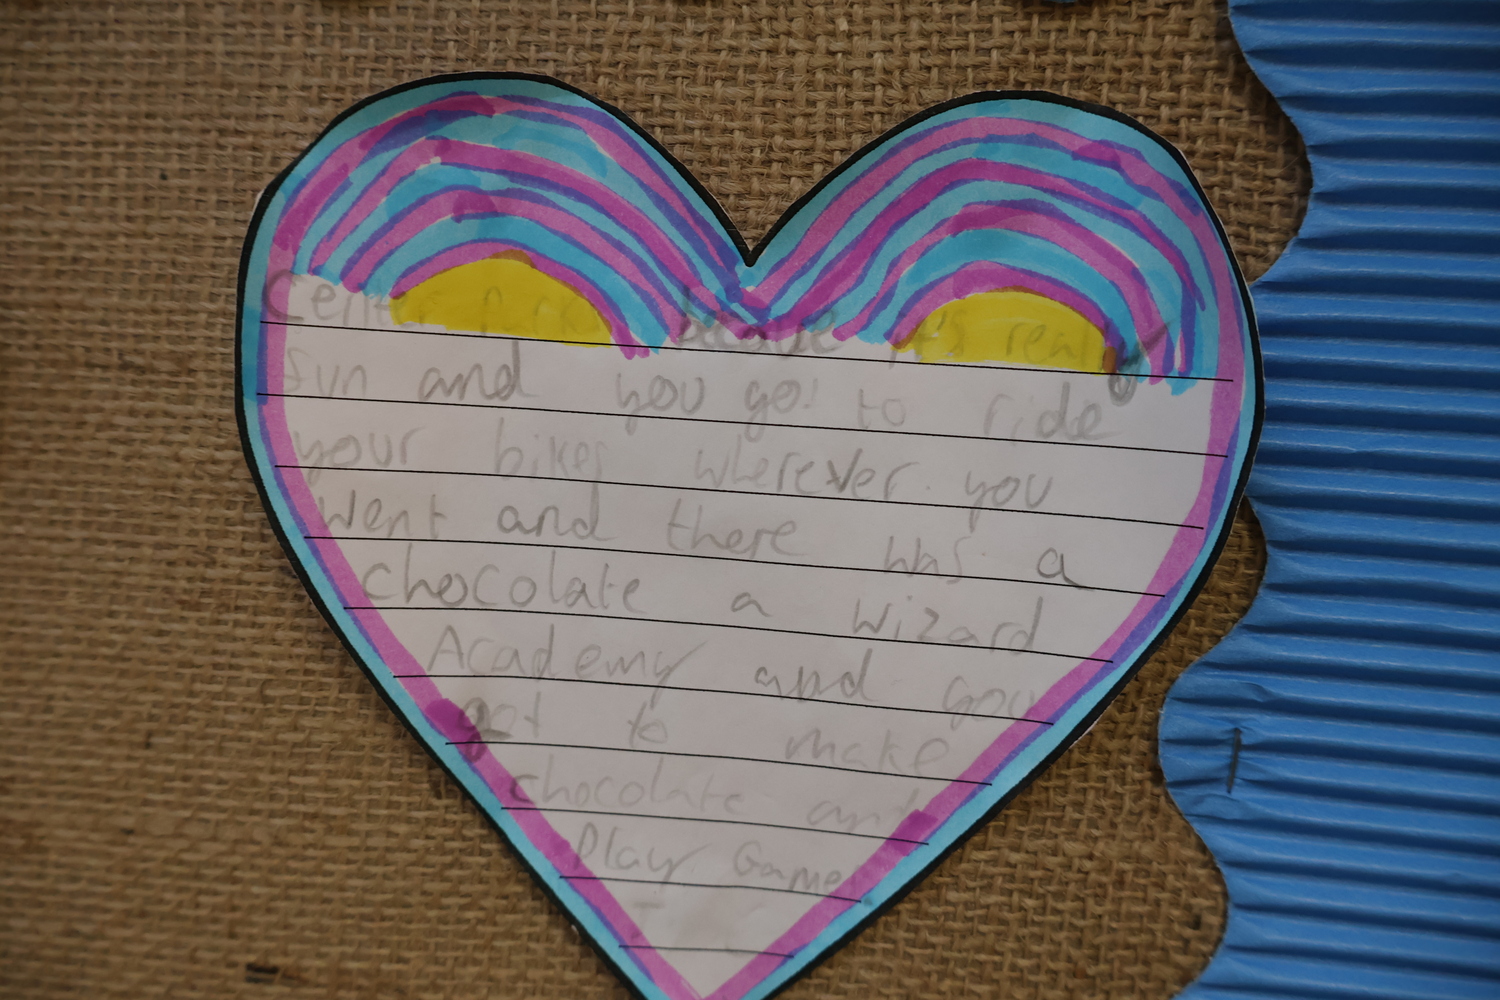 Center Parks becauve it's really
fun and you got to ride
your bikes wherever you
went and there was a
chocolate a wizard
Academy and you
got to make
chocolate and
Play Games